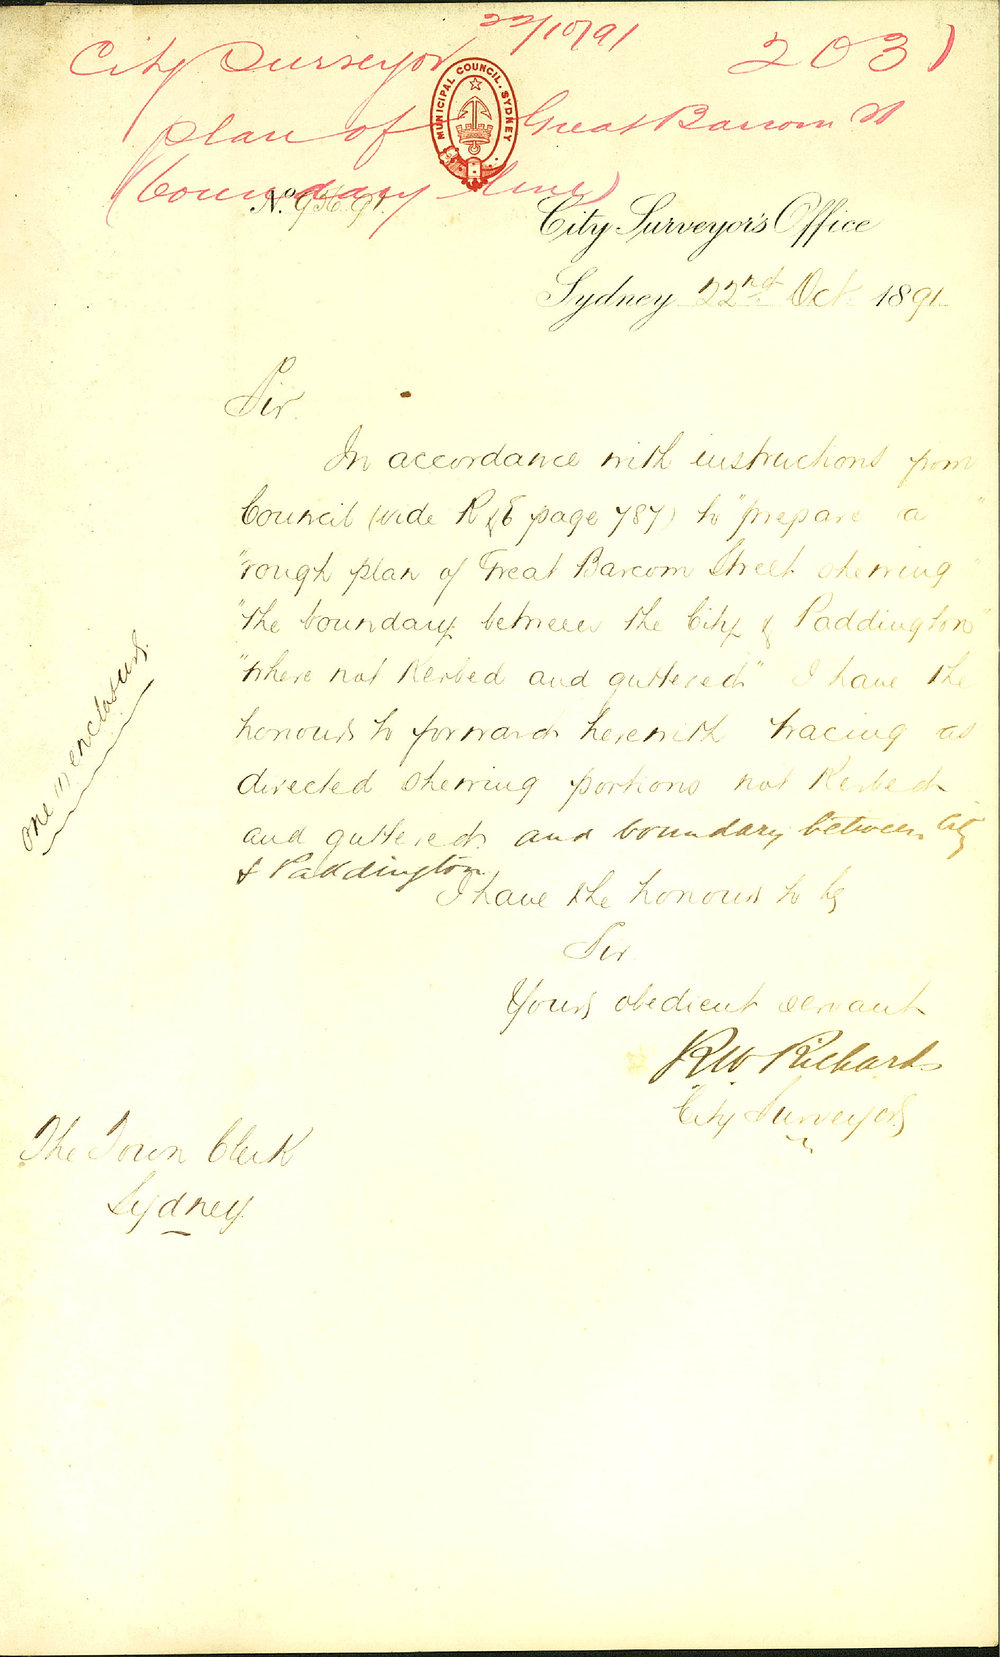 22/10/91
City Surveyor 2031
plan of Great Barcom St
(boundary line)
MUNICIPAL COUNCIL. SYDNEY
No. 936.91.
City Surveyor's Office
Sydney 22nd Oct. 1891
Sir.
In accordance with instructions from
Council (vide R & E page 787) to "prepare a
"rough plan of Great Barcom Street shewing"
"the boundary between the City & Paddington"
"where not Kerbed and guttered" I have the
honour to forward herewith tracing as
directed shewing portions not Kerbed
and guttered and boundary between City
& Paddington
I have the honour to be
Sir.
Yours obedient servant
RW Richards
City Surveyor
one enclosure.
The Town Clerk
Sydney.